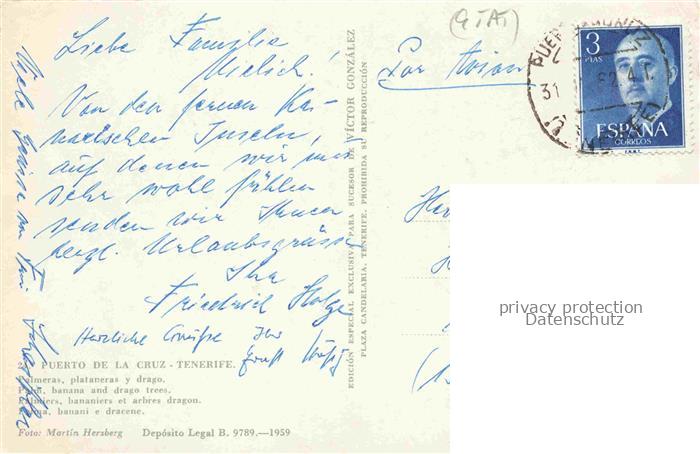 (GTAT)
Liebe Familie
Mielich!
Von den fernen Ka-
narischen Inseln,
auf denen wir uns
sehr wohl fühlen
senden wir Ihnen
herzl. Urlaubsgrüsse
Ihr
Friedrich
Herzliche Grüße Ihr
Ernst
Viele Grüsse von
Par Avion
3
PTAS
ESPAÑA
CORREOS
31
EDICIÓN ESPECIAL EXCLUSIVA PARA SUCESOR DE VÍCTOR GONZÁLEZ
PLAZA CANDELARIA, TENERIFE. PROHIBIDA SU REPRODUCCIÓN
PUERTO DE LA CRUZ - TENERIFE.
Palmeras, plataneras y drago.
Palm, banana and drago trees.
Palmiers, bananiers et arbres dragon.
banani e dracene.
Foto: Martin Herzberg Depósito Legal B. 9789.—1959
privacy protection
Datenschutz